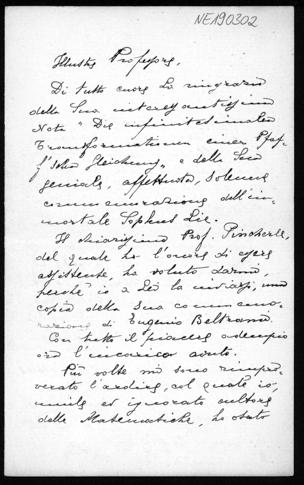 NE190302
Illustre Professore,
Di tutto cuore La ringrazio
della Sua interessantissima
Nota "Die infinitesimalen
Transformationen einer Pfaf-
f'schen Gleichung" e della Sua
geniale, affettuosa, solenne
commemorazione dell'im-
mortale Sophus Lie.
Il chiarissimo Prof. Pincherle,
del quale ho l'onore di essere
assistente, ha voluto darmi,
perchè io a Lei la inviassi, una
copia della Sua commemo-
razione di Eugenio Beltrami.
Con tutto il piacere adempio
ora l'incarico avuto.
Più volte mi sono rimpro-
verato l'ardire, col quale io,
umile ed ignorato cultore
delle Matematiche, ho osato